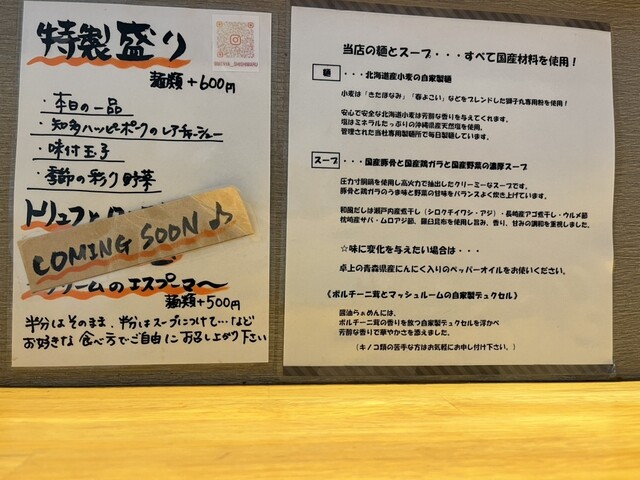 特製盛り
麺類+600円
・本日の一品
・知多ハッピーポークのレアチャーシュー
・味付玉子
・季節の彩り野菜
トリュフと
COMING SOON♪
クリームのエスプーマ〜
麺類+500円
半分はそのまま、半分はスープにつけて…など
お好きな食べ方でご自由にお召し上がり下さい
当店の麺とスープ・・・すべて国産材料を使用!
麺・・・北海道産小麦の自家製麺
小麦は「きたほなみ」「春よこい」などをブレンドした獅子丸専用粉を使用!
安心で安全な北海道産小麦は芳醇な香りを与えてくれます。
塩はミネラルたっぷりの沖縄県産天然塩を使用。
管理された当社専用製麺所で毎日製麺しています。
スープ・・・国産豚骨と国産鶏ガラと国産野菜の濃厚スープ
圧力寸胴鍋を使用し高火力で抽出したクリーミーなスープです。
豚骨と鶏ガラのうま味と野菜の甘味をバランスよく炊き上げています。
和風だしは瀬戸内産煮干(シロクチイワシ・アジ)・長崎産アゴ煮干し・ウルメ節
枕崎産サバ・ムロアジ節、羅臼昆布を使用し旨み、香り、甘みの調和を重視しました。
☆味に変化を与えたい場合は・・・
卓上の青森県産にんにく入りのペッパーオイルをお使いください。
《ポルチーニ茸とマッシュルームの自家製デュクセル》
醤油らぁめんには、
ポルチーニ茸の香りを放つ自家製デュクセルを浮かべ
芳醇な香りで華やかさを添えました。
(キノコ類の苦手な方はお気軽にお申し付け下さい。)